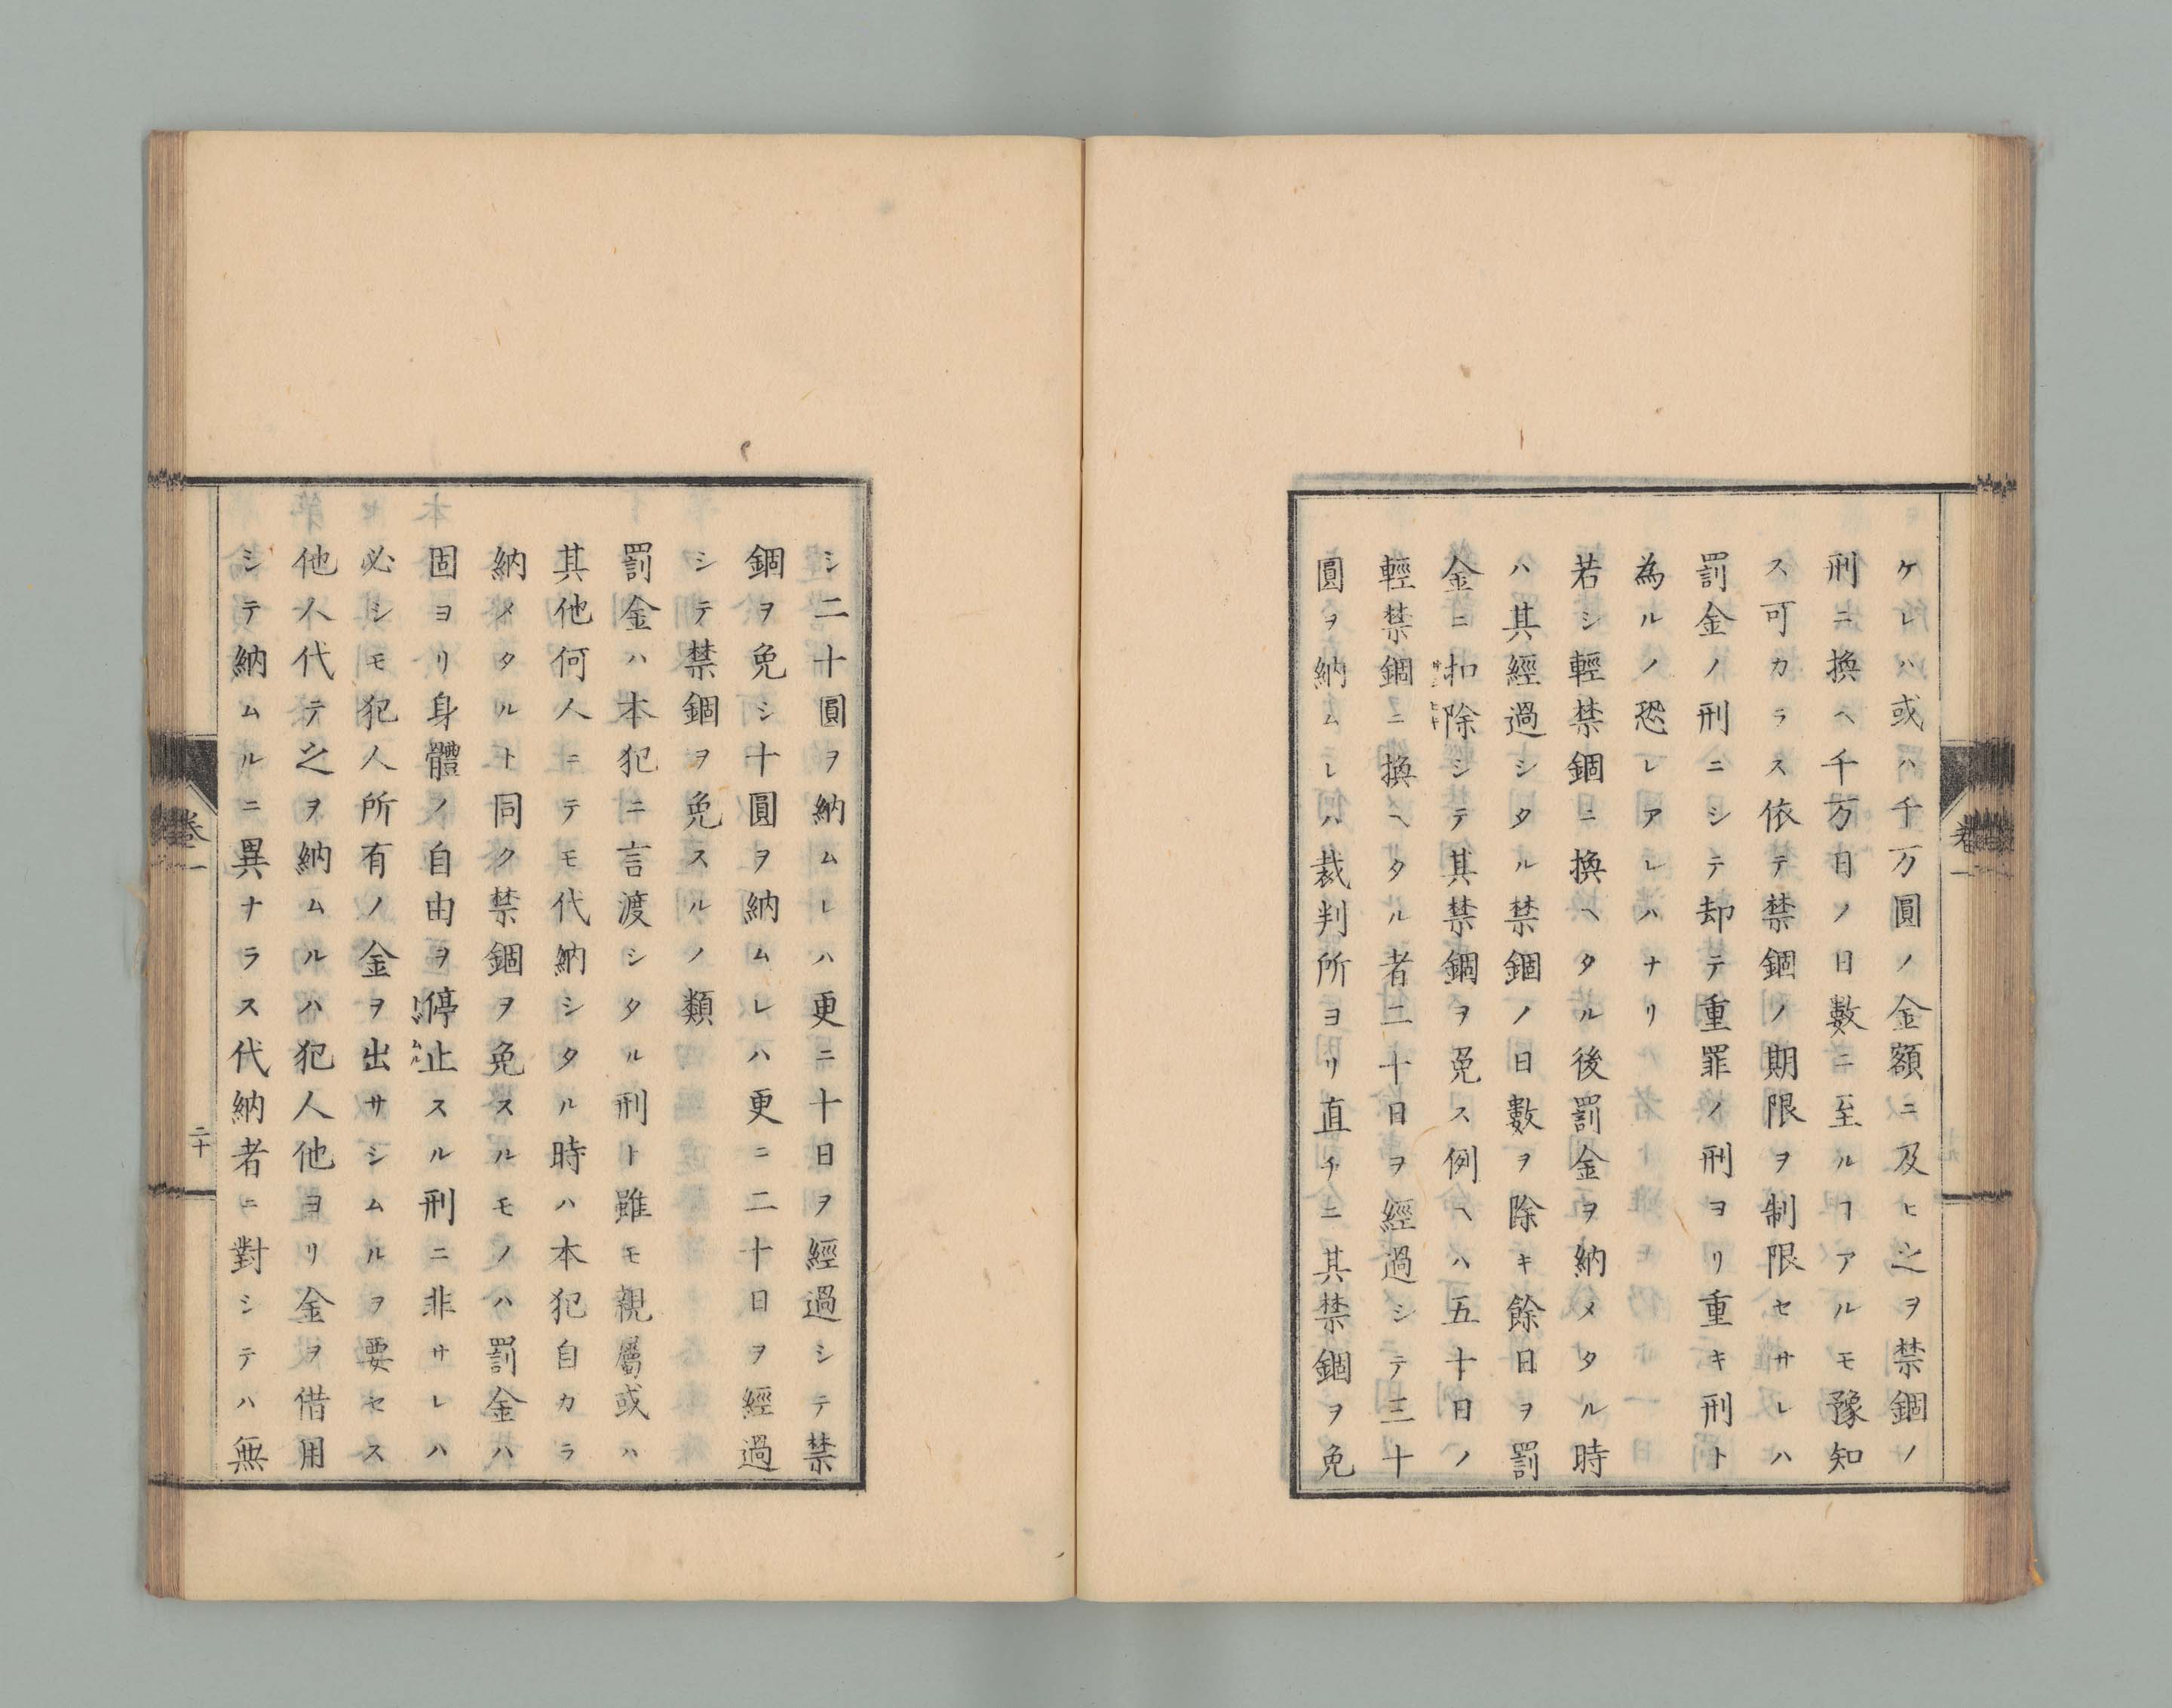 ケレハ或ハ千万圓ノ金額ニ及ヒ之ヲ禁錮ノ
刑ニ換ヘ千万日ノ日數ニ至ルヿアルモ豫知
ス可カラス依テ禁錮ノ期限ヲ制限セサレハ
罰金ノ刑ニシテ却テ重罪ノ刑ヨリ重キ刑ト
為ルノ恐レアレハナリ
若シ輕禁錮ニ換ヘタル後罰金ヲ納メタル時
ハ其經過シタル禁錮ノ日數ヲ除キ餘日ヲ罰
金ニ扣除シテ其禁錮ヲ免ス例ヘハ五十日ノ
輕禁錮ニ換ヘタル者二十日ヲ經過シテ三十
圓ヲ納ムレハ裁判所ヨリ直チニ其禁錮ヲ免
卷一
シ二十圓ヲ納ムレハ更ニ十日ヲ經過シテ禁
錮ヲ免シ十圓ヲ納ムレハ更ニ二十日ヲ經過
シテ禁錮ヲ免スルノ類
罰金ハ本犯ニ言渡シタル刑ト雖モ親屬或ハ
其他何人ニテモ代納シタル時ハ本犯自カラ
納メタルト同ク禁錮ヲ免スルモノハ罰金ハ
固ヨリ身體ノ自由ヲ停止スル刑ニ非サレハ
必シモ犯人所有ノ金ヲ出サシムルヲ要セス
他人代テ之ヲ納ムルハ犯人他ヨリ金ヲ借用
シテ納ムルニ異ナラス代納者ニ對シテハ無
卷一
二十